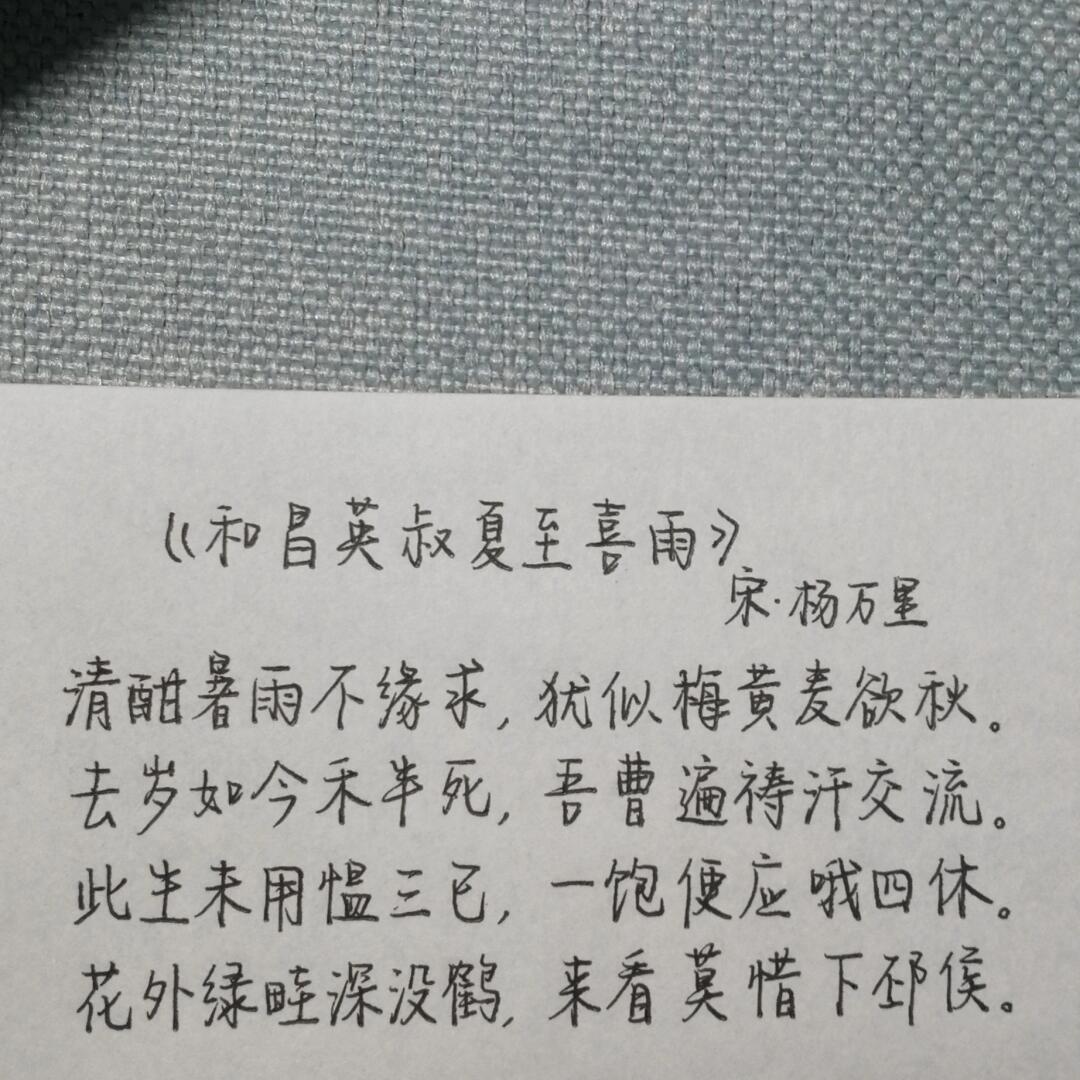 《和昌英叔夏至喜雨》
宋·杨万里
清酣暑雨不缘求，犹似梅黄麦欲秋。
去岁如今禾半死，吾曹遍祷汗交流。
此生未用愠三已，一饱便应哦四休。
花外绿畦深没鹤，来看莫惜下邳侯。